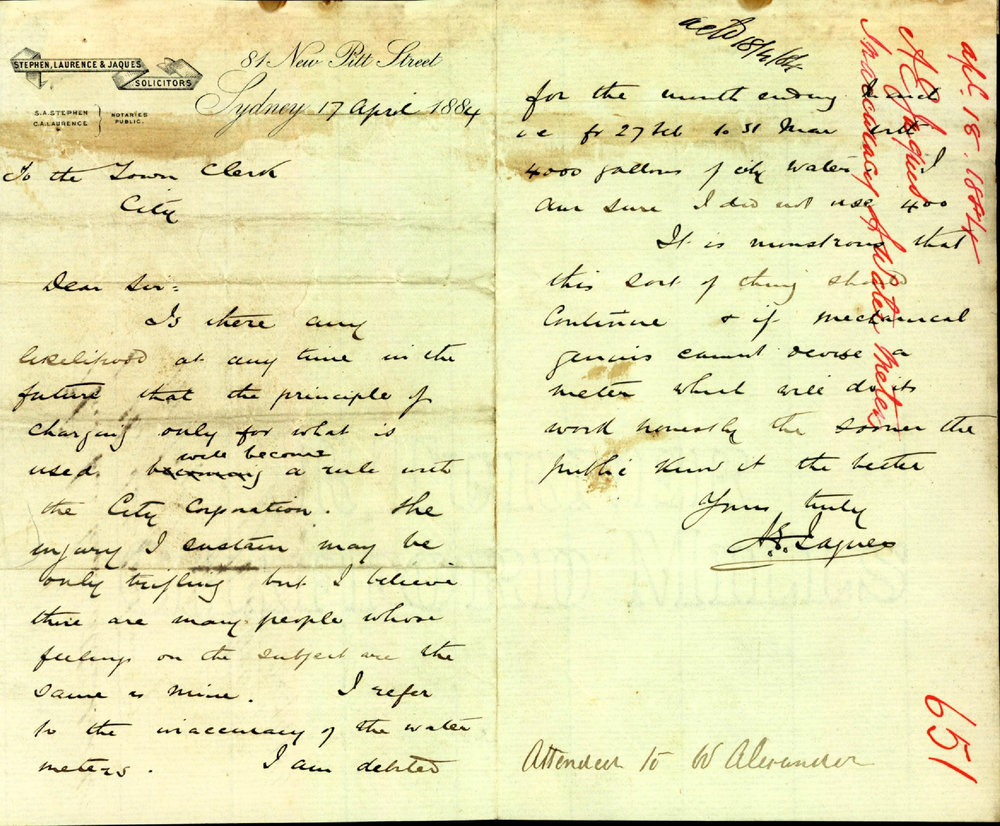 STEPHEN, LAURENCE & JAQUES
SOLICITORS
S.A. STEPHEN
C.A. LAURENCE
NOTARIES
PUBLIC.
81 New Pitt Street
Sydney 17 April 1884
To the Town Clerk
City
Dear Sir =
Is there any
likelihood at any time in the
future that the principle of
charging only for what is
will become
used becoming a rule with
the City Corporation. The
injury I sustain may be
only trifling but I believe
there are many people whose
feelings on the subject are the
same as mine. I refer
to the inaccuracy of the water
meters. I am debited
ackd 18/4/84
for the month ending
ie fr 27 feb to 31 Mar with
4000 gallons of city water I
am sure I did not use 400
It is monstrous that
this sort of thing should
continue & if mechanical
genius cannot devise a
meter which will do its
work honestly the sooner the
public know it the better
Yours truly
A.E. Jaques
Attended to W Alexander
apl. 18. 1884
A E Jaques
Inaccuracy of Water Meters
651